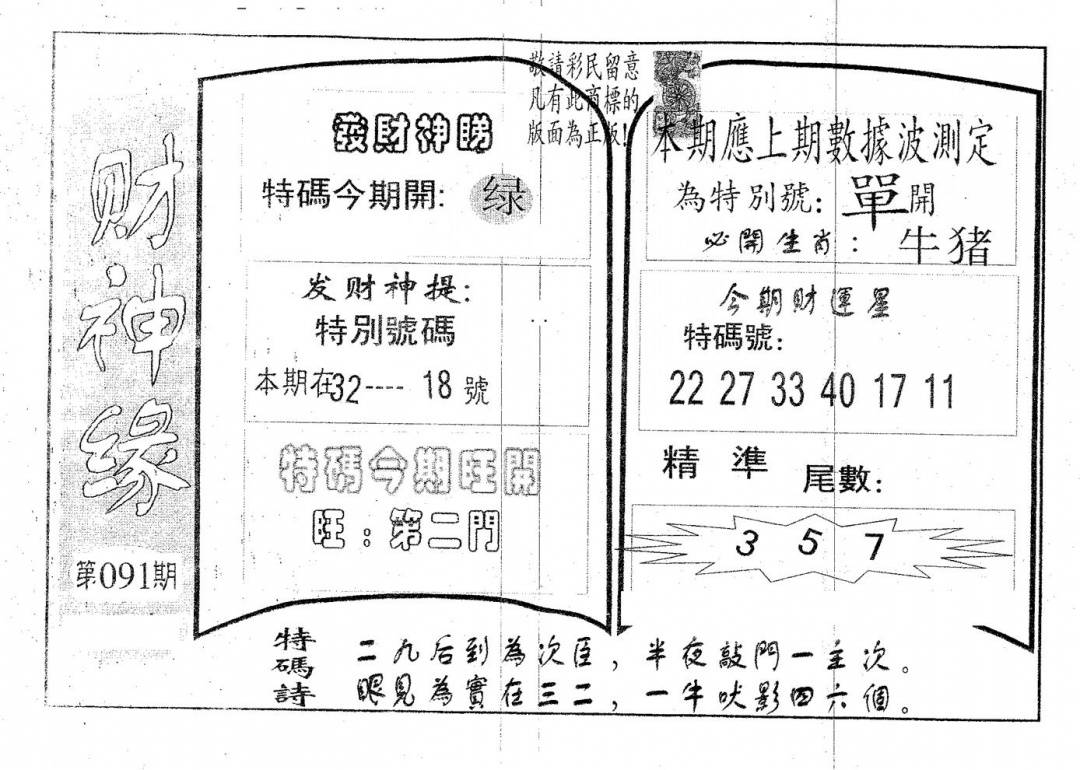 财神缘
第091期
敬請彩民留意
凡有此商標的
版面為正版!
發財神睇
特碼今期開: 绿
发财神提:
特別號碼
本期在32---- 18 號
特碼今期旺開
旺:第二門
本期應上期數據波測定
為特別號: 單開
必開生肖: 牛猪
今期財運星
特碼號:
22 27 33 40 17 11
精準 尾數:
3 5 7
特碼詩
二九后到為次臣,半夜敲門一主次。
眼見為實在三二,一牛吠影四六個。